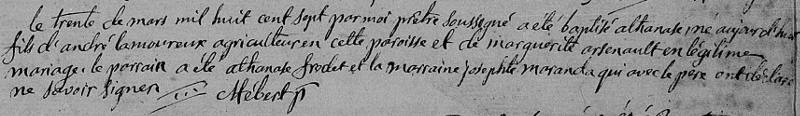 le trente de mars mil huit cent sept par moi prêtre soussigné a été baptisé athanase, né aujourd'hui
fils d'andré lamoureux agriculteur en cette paroisse et de marguerite arsenault en légitime
mariage. le parrain a été athanase frodet et la marraine josephte maranda qui avec le pere ont déclaré
ne savoir signer
MHebert ptr